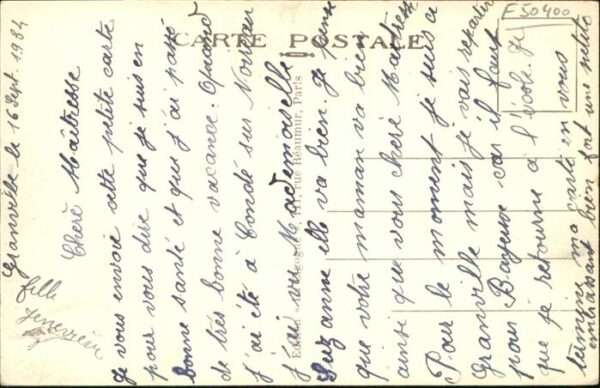 F50400
CARTE POSTALE
rue Réaumur, Paris
Granville le 16 Sept. 1934
Cherè Maîtresse
Je vous envoie cette petite carte
pour vous dire que je suis en
bonne santé et que j'ai passé
de très bonne vacance. Quand
j'ai été à Condé sur Noireau
j'ai vu Mademoiselle
Suzanne elle va bien. Je pense
que votre maman va bien
ainsi que vous cherè Maîtresse
Pour le moment je suis a
Granville mais je vais repartir
pour Bayeux car il faut
que je retourne a l'école. Je
termine ma carte en vous
embrassant bien fort une petite
fille